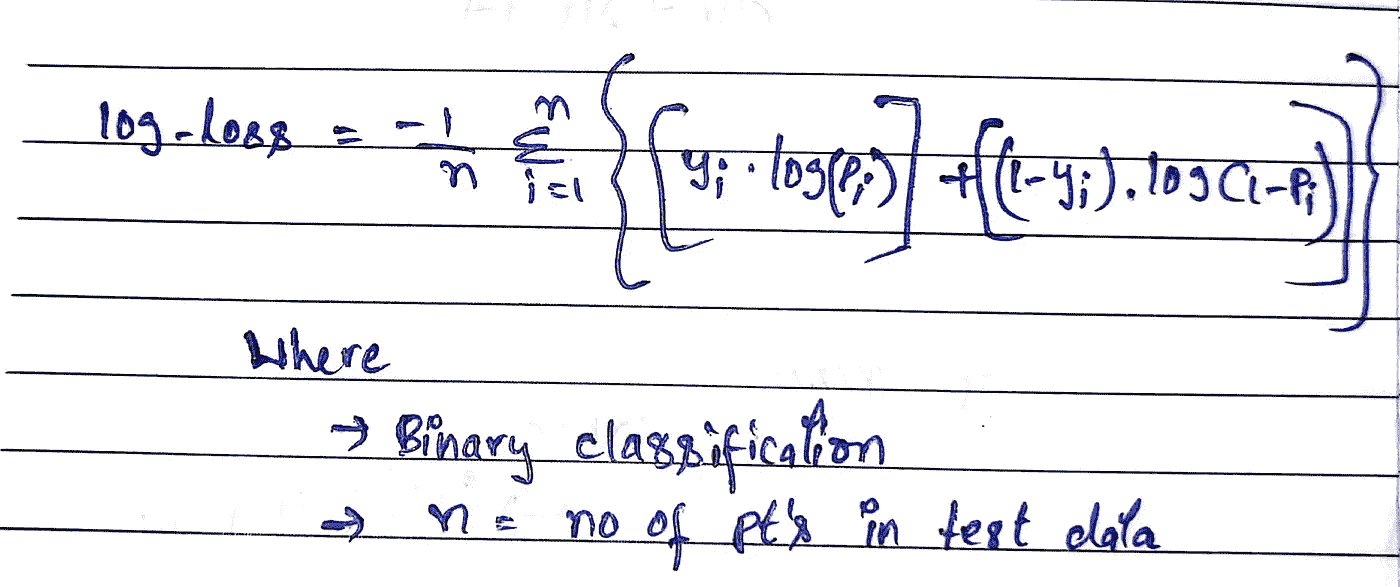 log-Loss = -1/n Σ_{i=1}^{n} { [ y_i . log(P_i) ] + [ (1-y_i) . log(1-P_i) ] }
Where
→ Binary classification
→ n = no of pt's in test data